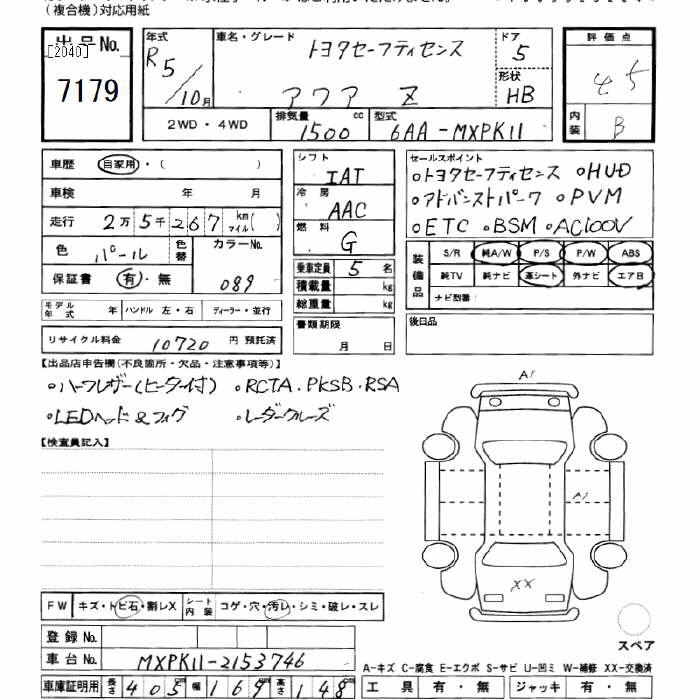 (複合機)対応用紙
出品No.
[2040]
7179
年式
R5/10月
車名・グレード
トヨタセーフティセンス
アクア Z
ドア
5
形状
HB
評価点
4.5
内装
B
2WD・4WD
排気量
1500 cc
型式
6AA-MXPK11
車歴 自家用・( )
車検 年 月
走行 2万5千267 km マイル( )
色 パール 色替 カラーNo. 089
保証書 有・無
シフト IAT
冷房 AAC
燃料 G
乗車定員 5 名
積載量 kg
総重量 kg
セールスポイント
○トヨタセーフティセンス ○HUD
○アドバンストパーク ○PVM
○ETC ○BSM ○AC100V
装備品
S/R 純A/W P/S P/W ABS
純TV 純ナビ 革シート 外ナビ エアB
ナビ型番:
モデル年式 年 ハンドル 左・右 ディーラー・並行
リサイクル料金 10720 円 預託済
書類期限
月 日
後日品
【出品店申告欄(不良箇所・欠品・注意事項等)】
○ハーフレザー(ヒーター付) ○RCTA.PKSB.RSA
○LEDヘッド&フォグ ○レーダークルーズ
【検査員記入】
A1
A1
XX
FW キズ・トビ石・割レX シート内装 コゲ・穴・汚レ・シミ・破レ・スレ
スペア
登録No.
車台No. MXPK11-2153746
A-キズ C-腐食 E-エクボ S-サビ U-凹ミ W-補修 XX-交換済
車庫証明用 長さ 405 cm 幅 169 cm 高さ 148 cm
工具 有・無 ジャッキ 有・無